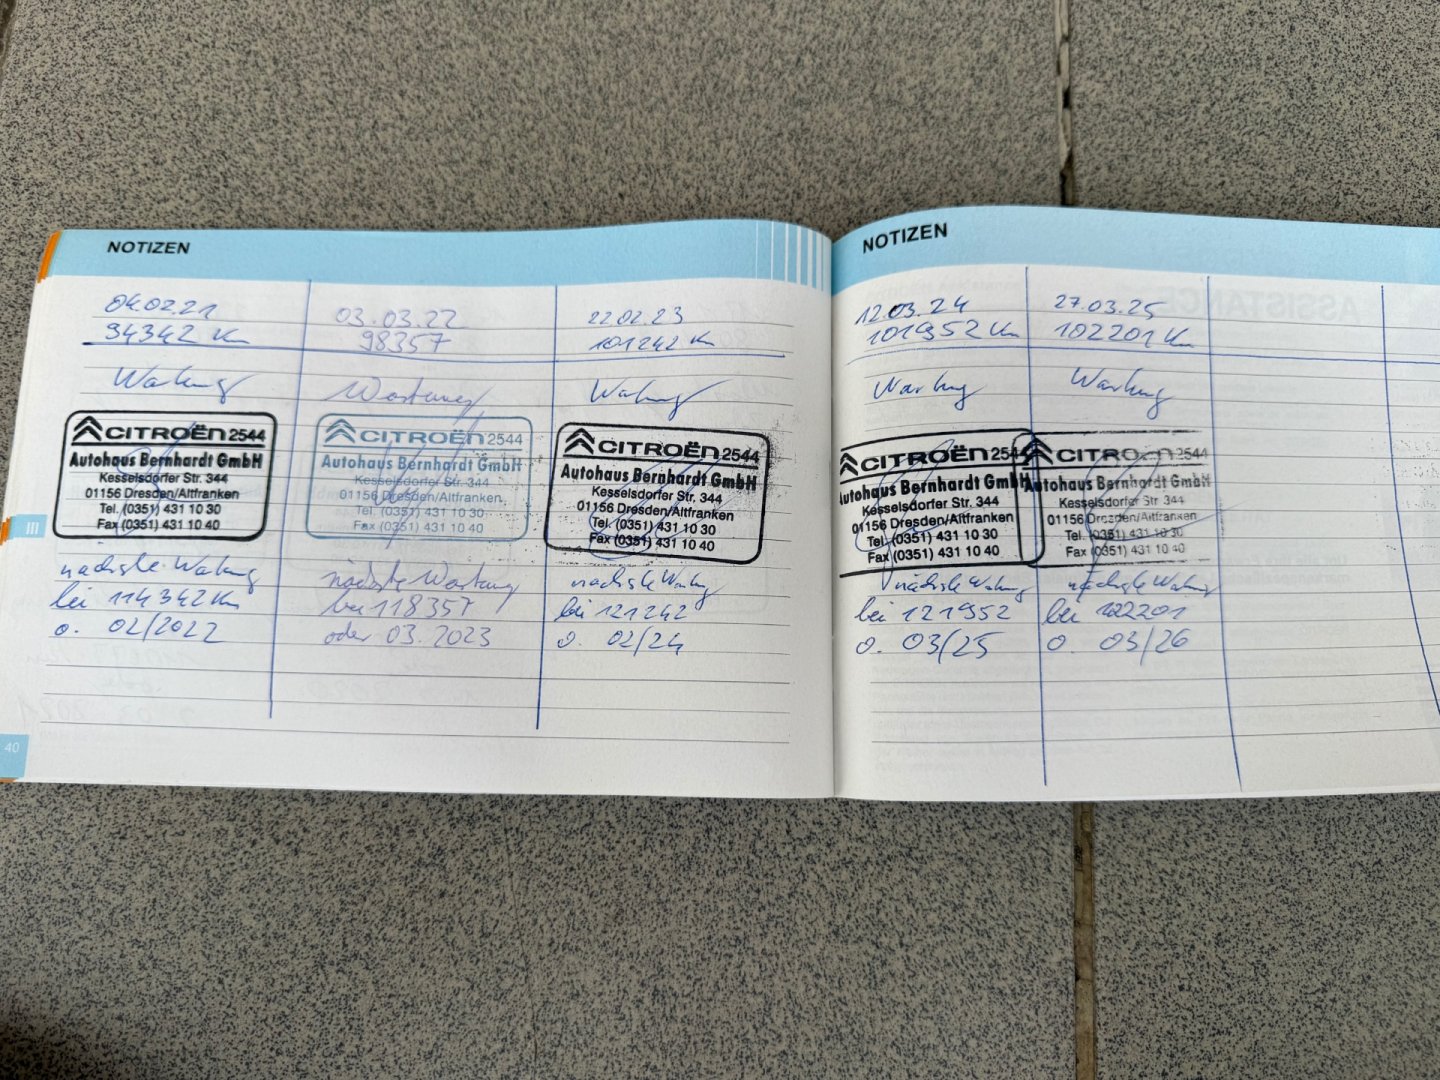 NOTIZEN
04.02.21
94342 Km
Wartung
CITROËN 2544
Autohaus Bernhardt GmbH
Kesselsdorfer Str. 344
01156 Dresden/Altfranken
Tel. (0351) 431 10 30
Fax (0351) 431 10 40
nächste Wartung
bei 114342 Km
o. 02/2022
03.03.22
98357
Wartung
CITROËN 2544
Autohaus Bernhardt GmbH
Kesselsdorfer Str. 344
01156 Dresden/Altfranken
Tel. (0351) 431 10 30
Fax (0351) 431 10 40
nächste Wartung
bei 118357
oder 03.2023
22.02.23
101242 Km
Wartung
CITROËN 2544
Autohaus Bernhardt GmbH
Kesselsdorfer Str. 344
01156 Dresden/Altfranken
Tel. (0351) 431 10 30
Fax (0351) 431 10 40
nächste Wartung
bei 121242
o. 02/24
III
40
NOTIZEN
12.03.24
101952 Km
Wartung
CITROËN 2544
Autohaus Bernhardt GmbH
Kesselsdorfer Str. 344
01156 Dresden/Altfranken
Tel. (0351) 431 10 30
Fax (0351) 431 10 40
nächste Wartung
bei 121952
o. 03/25
27.03.25
102201 Km
Wartung
CITROEN 2544
Autohaus Bernhardt GmbH
Kesselsdorfer Str. 344
01156 Dresden/Altfranken
Tel. (0351) 431 10 30
Fax (0351) 431 10 40
nächste Wartung
bei 122201
o. 03/26